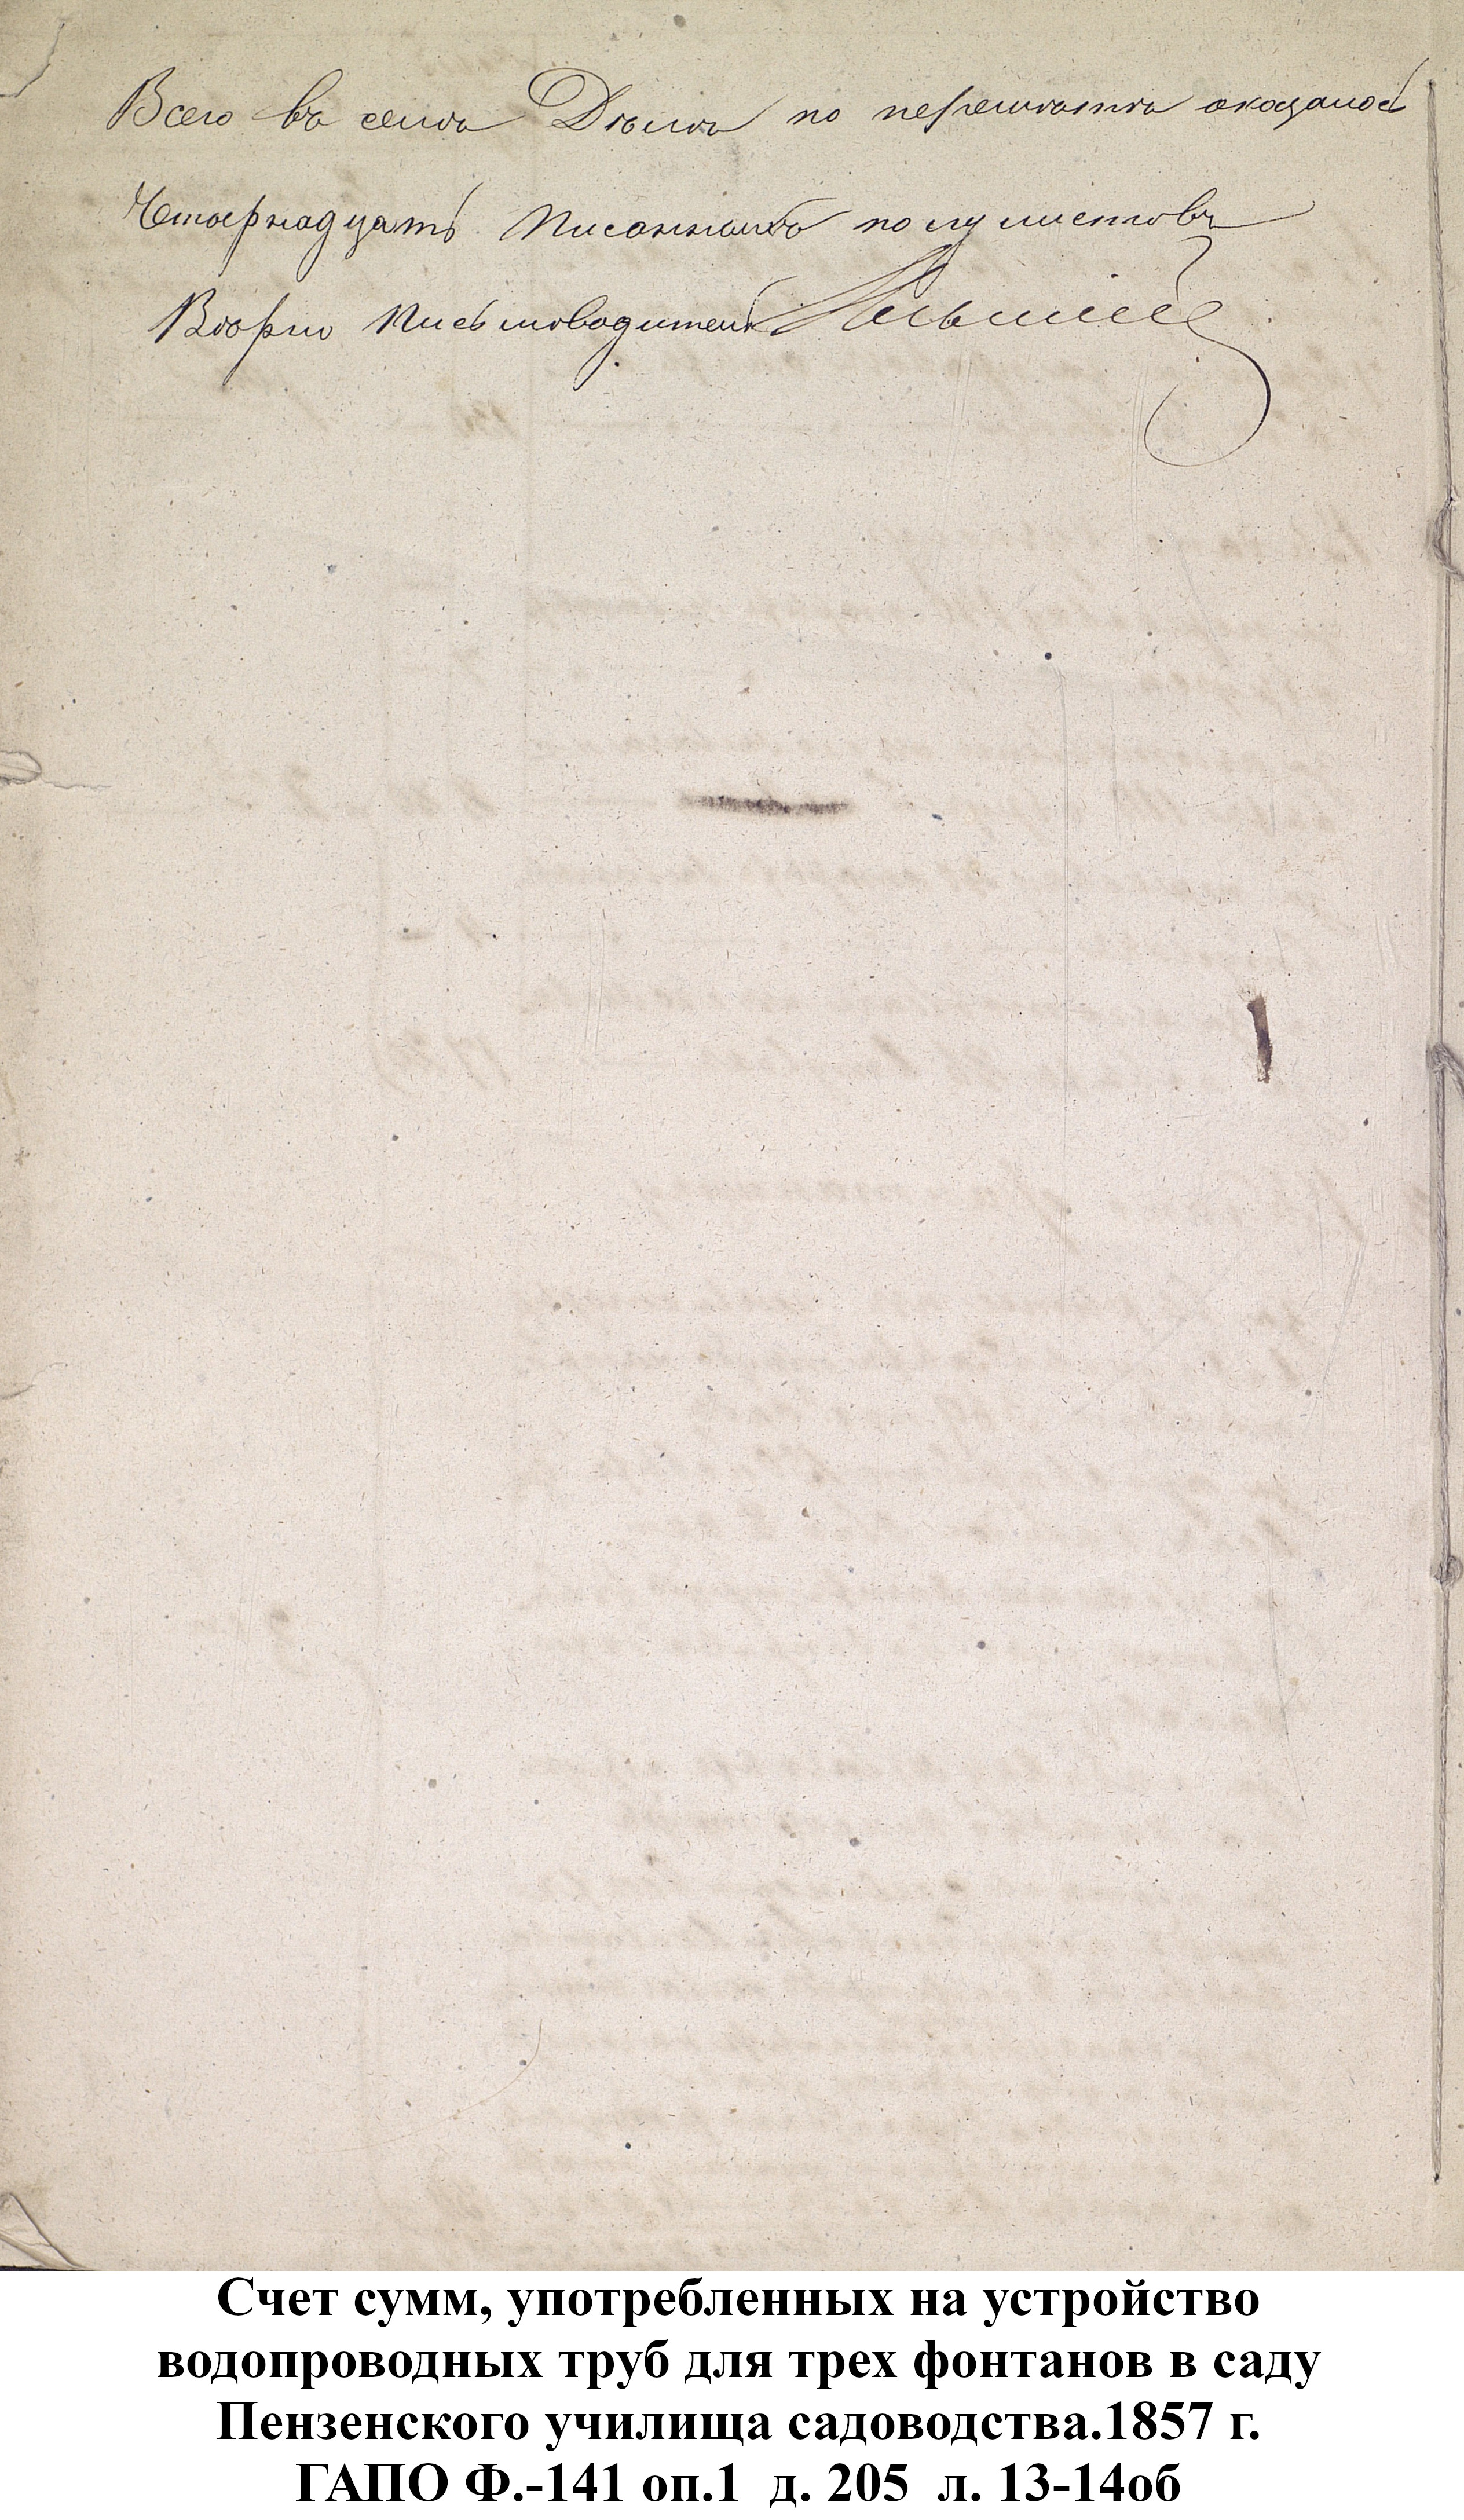 Всего въ семъ Дѣлѣ по перечѣту оказалось
Четырнадцать писанныхъ полулистовъ
Вѣрно Письмоводитель
Счет сумм, употребленных на устройство
водопроводных труб для трех фонтанов в саду
Пензенского училища садоводства.1857 г.
ГАПО Ф.-141 оп.1 д. 205 л. 13-14об